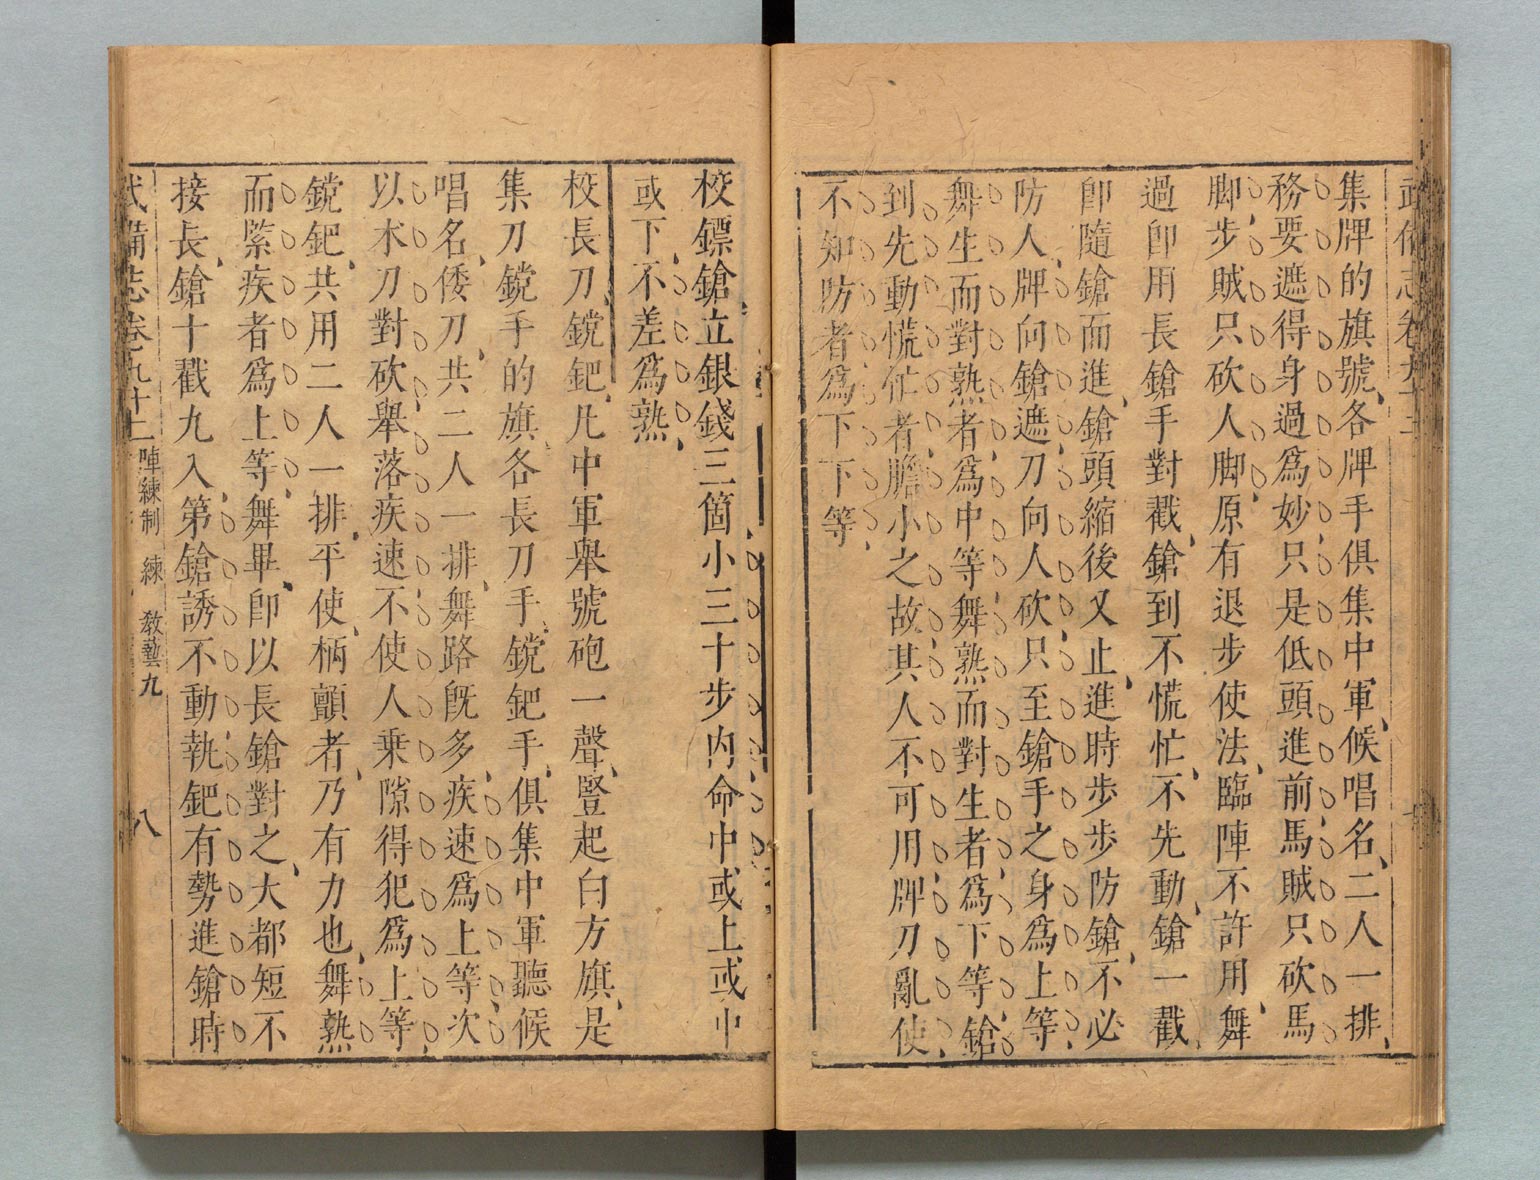 武備志卷九十二
集牌的旗號各牌手俱集中軍候唱名二人一排
務要遮得身過爲妙只是低頭進前馬賊只砍馬
脚步賊只砍人脚原有退步使法臨陣不許用舞
過卽用長鎗手對戳鎗到不慌忙不先動鎗一戳
卽隨鎗而進鎗頭縮後又止進時步步防鎗不必
防人牌向鎗遮刀向人砍只至鎗手之身爲上等
舞生而對熟者爲中等舞熟而對生者爲下等鎗
到先動慌忙者膽小之故其人不可用牌刀亂使
不知防者爲下下等
校鏢鎗立銀錢三箇小三十步內命中或上或中
或下不差爲熟
校長刀鎲鈀凡中軍舉號砲一聲豎起白方旗是
集刀鎲手的旗各長刀手鎲鈀手俱集中軍聽候
唱名倭刀共二人一排舞路旣多疾速爲上等次
以木刀對砍舉落疾速不使人乘隙得犯爲上等
鎲鈀共用二人一排平使柄顫者乃有力也舞熟
而緊疾者爲上等舞畢卽以長鎗對之大都短不
接長鎗十戳九入第鎗誘不動執鈀有勢進鎗時
武備志卷九十二 陣練制 練 敎藝九 八